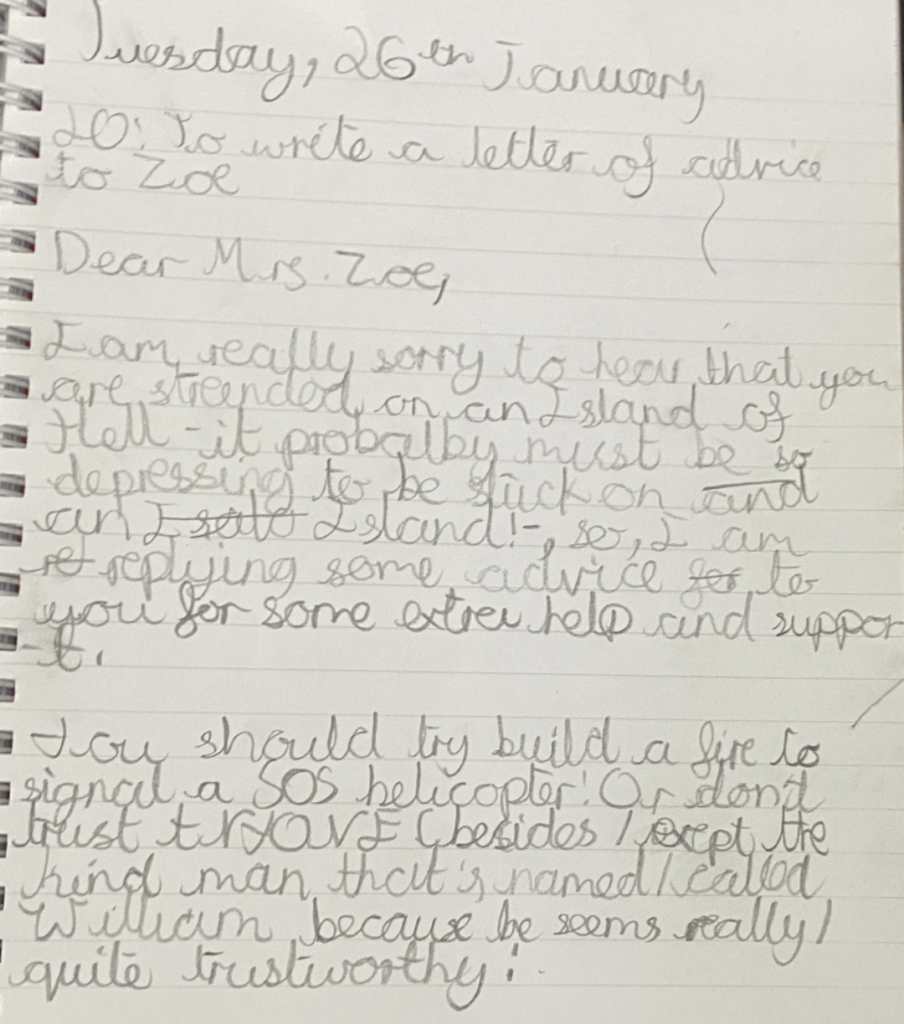 Tuesday, 26th January
LO: To write a letter of advice
to Zoe
Dear Mrs. Zoe,
I am really sorry to hear that you
are streanded on an Island of
Hell - it probalby must be so
depressing to be stuck on and
an Island!-, so, I am
replying some advice for to
you for some extrea help and suppor
-t.
You should try build a fire to
signal a SOS helicopter! Or don't
trust (besides / except the
kind man that's named / called
William because he seems really /
quite trustworthy!